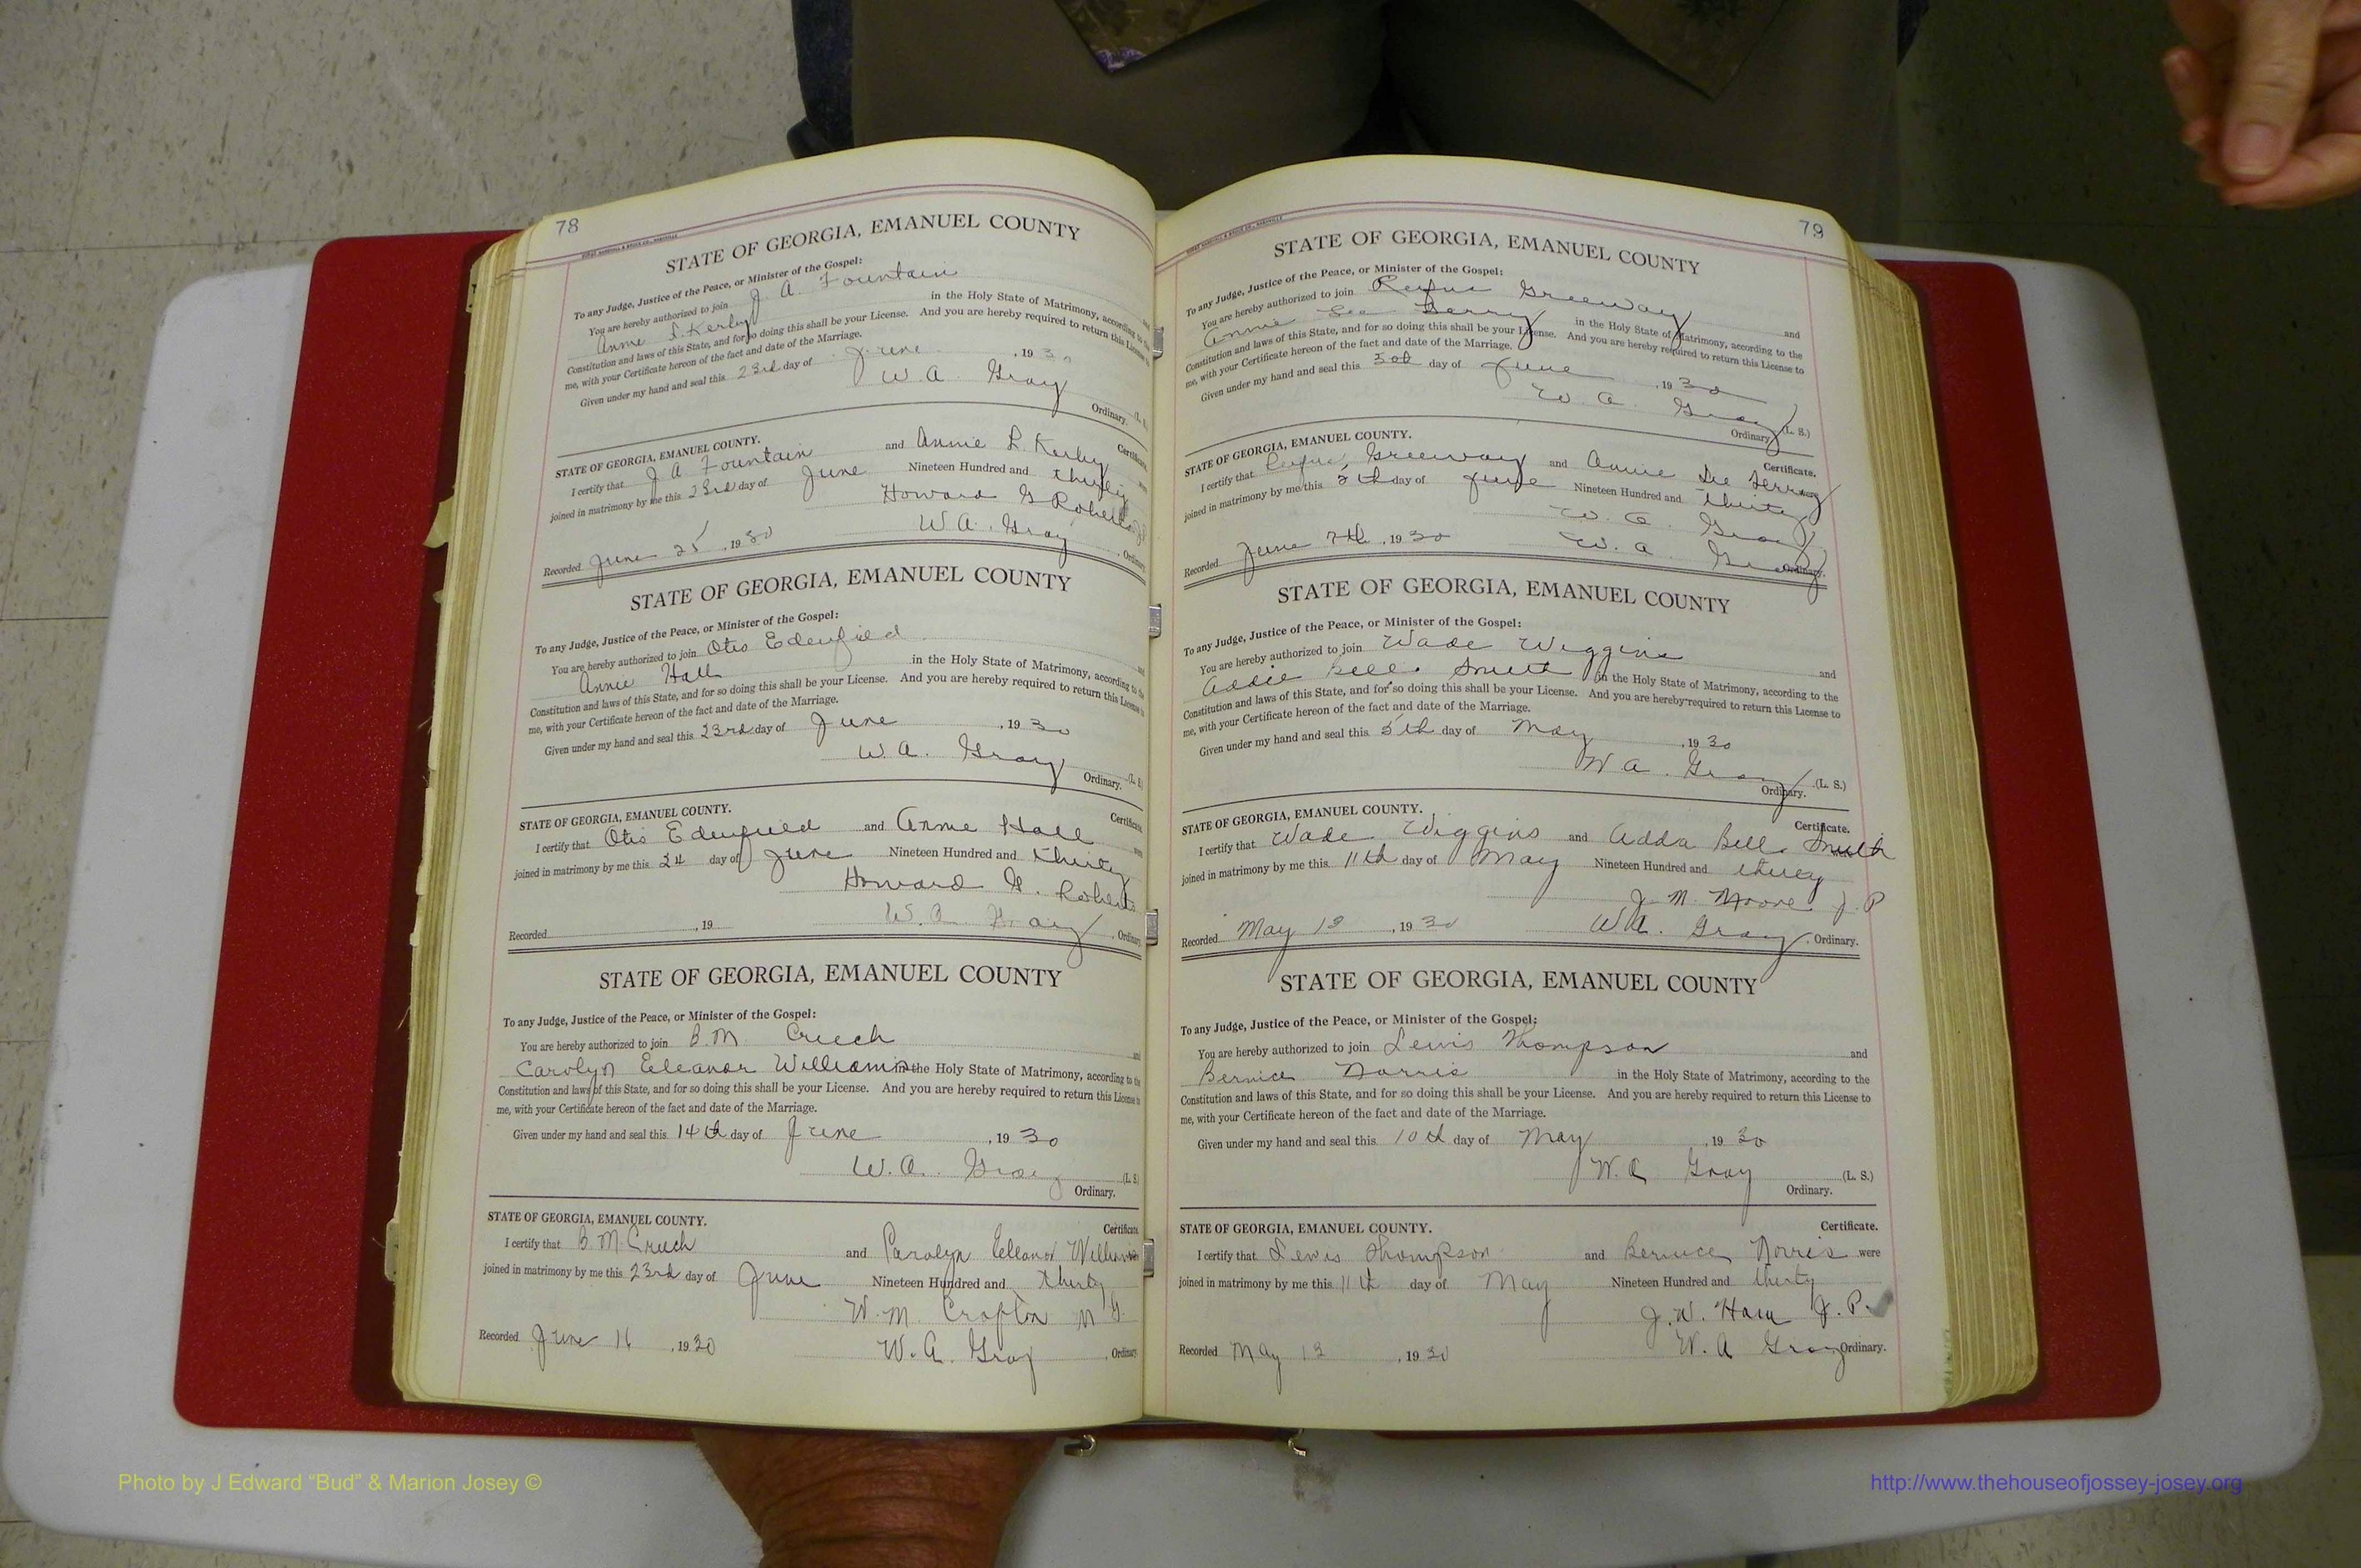 78
STATE OF GEORGIA, EMANUEL COUNTY
To any Judge, Justice of the Peace, or Minister of the Gospel:
You are hereby authorized to join J A. Fountain and
Annie L. Kerby in the Holy State of Matrimony, according to the
Constitution and laws of this State, and for so doing this shall be your License. And you are hereby required to return this License to
me, with your Certificate hereon of the fact and date of the Marriage.
Given under my hand and seal this 23rd day of June, 1930
W. A. Gray (L. S.)
Ordinary.
STATE OF GEORGIA, EMANUEL COUNTY. Certificate.
I certify that J. A Fountain and Annie L. Kerby were
joined in matrimony by me this 23rd day of June Nineteen Hundred and thirty
Howard G Roberts
Recorded June 25, 1930 W. A. Gray, Ordinary.
STATE OF GEORGIA, EMANUEL COUNTY
To any Judge, Justice of the Peace, or Minister of the Gospel:
You are hereby authorized to join Otis Edenfield and
Annie Hall in the Holy State of Matrimony, according to the
Constitution and laws of this State, and for so doing this shall be your License. And you are hereby required to return this License to
me, with your Certificate hereon of the fact and date of the Marriage.
Given under my hand and seal this 23rd day of June, 1930
W. A. Gray (L. S)
Ordinary.
STATE OF GEORGIA, EMANUEL COUNTY. Certificate.
I certify that Otis Edenfield and Annie Hall were
joined in matrimony by me this 24 day of June Nineteen Hundred and thirty
Howard G. Roberts
Recorded, 19 W. A Gray, Ordinary
STATE OF GEORGIA, EMANUEL COUNTY
To any Judge, Justice of the Peace, or Minister of the Gospel:
You are hereby authorized to join B. M. Creech and
Carolyn Eleanor Williams in the Holy State of Matrimony, according to the
Constitution and laws of this State, and for so doing this shall be your License. And you are hereby required to return this License to
me, with your Certificate hereon of the fact and date of the Marriage.
Given under my hand and seal this 14th day of June, 1930
W. A. Gray (L. S)
Ordinary.
STATE OF GEORGIA, EMANUEL COUNTY. Certificate
I certify that B. M Creech and Carolyn Eleanor Williams
joined in matrimony by me this 23rd day of June Nineteen Hundred and thirty
W. M. Crofton M G.
Recorded June 16, 1930 W. A. Gray, Ordinary
79
STATE OF GEORGIA, EMANUEL COUNTY
To any Judge, Justice of the Peace, or Minister of the Gospel:
You are hereby authorized to join Rufus Greeway and
Annie Lee in the Holy State of Matrimony, according to the
Constitution and laws of this State, and for so doing this shall be your License. And you are hereby required to return this License to
me, with your Certificate hereon of the fact and date of the Marriage.
Given under my hand and seal this 5th day of June, 1930
W. A. Gray (L. S.)
Ordinary
STATE OF GEORGIA, EMANUEL COUNTY. Certificate.
I certify that Rufus Greeway and Annie Lee were
joined in matrimony by me this 5th day of June Nineteen Hundred and thirty
W. A. Gray
Recorded June 7th, 1930 W. A Gray Ordinary.
STATE OF GEORGIA, EMANUEL COUNTY
To any Judge, Justice of the Peace, or Minister of the Gospel:
You are hereby authorized to join Wade Wiggins and
Addie Bell Smith in the Holy State of Matrimony, according to the
Constitution and laws of this State, and for so doing this shall be your License. And you are hereby required to return this License to
me, with your Certificate hereon of the fact and date of the Marriage.
Given under my hand and seal this 5th day of May, 1930
W A. Gray (L. S.)
Ordinary.
STATE OF GEORGIA, EMANUEL COUNTY. Certificate.
I certify that Wade Wiggins and Adda Bell Smith were
joined in matrimony by me this 11th day of May Nineteen Hundred and thirty
J. M. Moore J. P
Recorded May 13, 1930 W. A. Gray, Ordinary.
STATE OF GEORGIA, EMANUEL COUNTY
To any Judge, Justice of the Peace, or Minister of the Gospel:
You are hereby authorized to join Lewis Thompson and
Bernice Norris in the Holy State of Matrimony, according to the
Constitution and laws of this State, and for so doing this shall be your License. And you are hereby required to return this License to
me, with your Certificate hereon of the fact and date of the Marriage.
Given under my hand and seal this 10th day of May, 1930
W. A Gray (L. S.)
Ordinary.
STATE OF GEORGIA, EMANUEL COUNTY. Certificate.
I certify that Lewis Thompson and Bernice Norris were
joined in matrimony by me this 11th day of May Nineteen Hundred and thirty
J. W. Ham J. P.
Recorded May 13, 1930 W. A Gray Ordinary.
Photo by J Edward “Bud” & Marion Josey ©
http://www.thehouseofjossey-josey.org